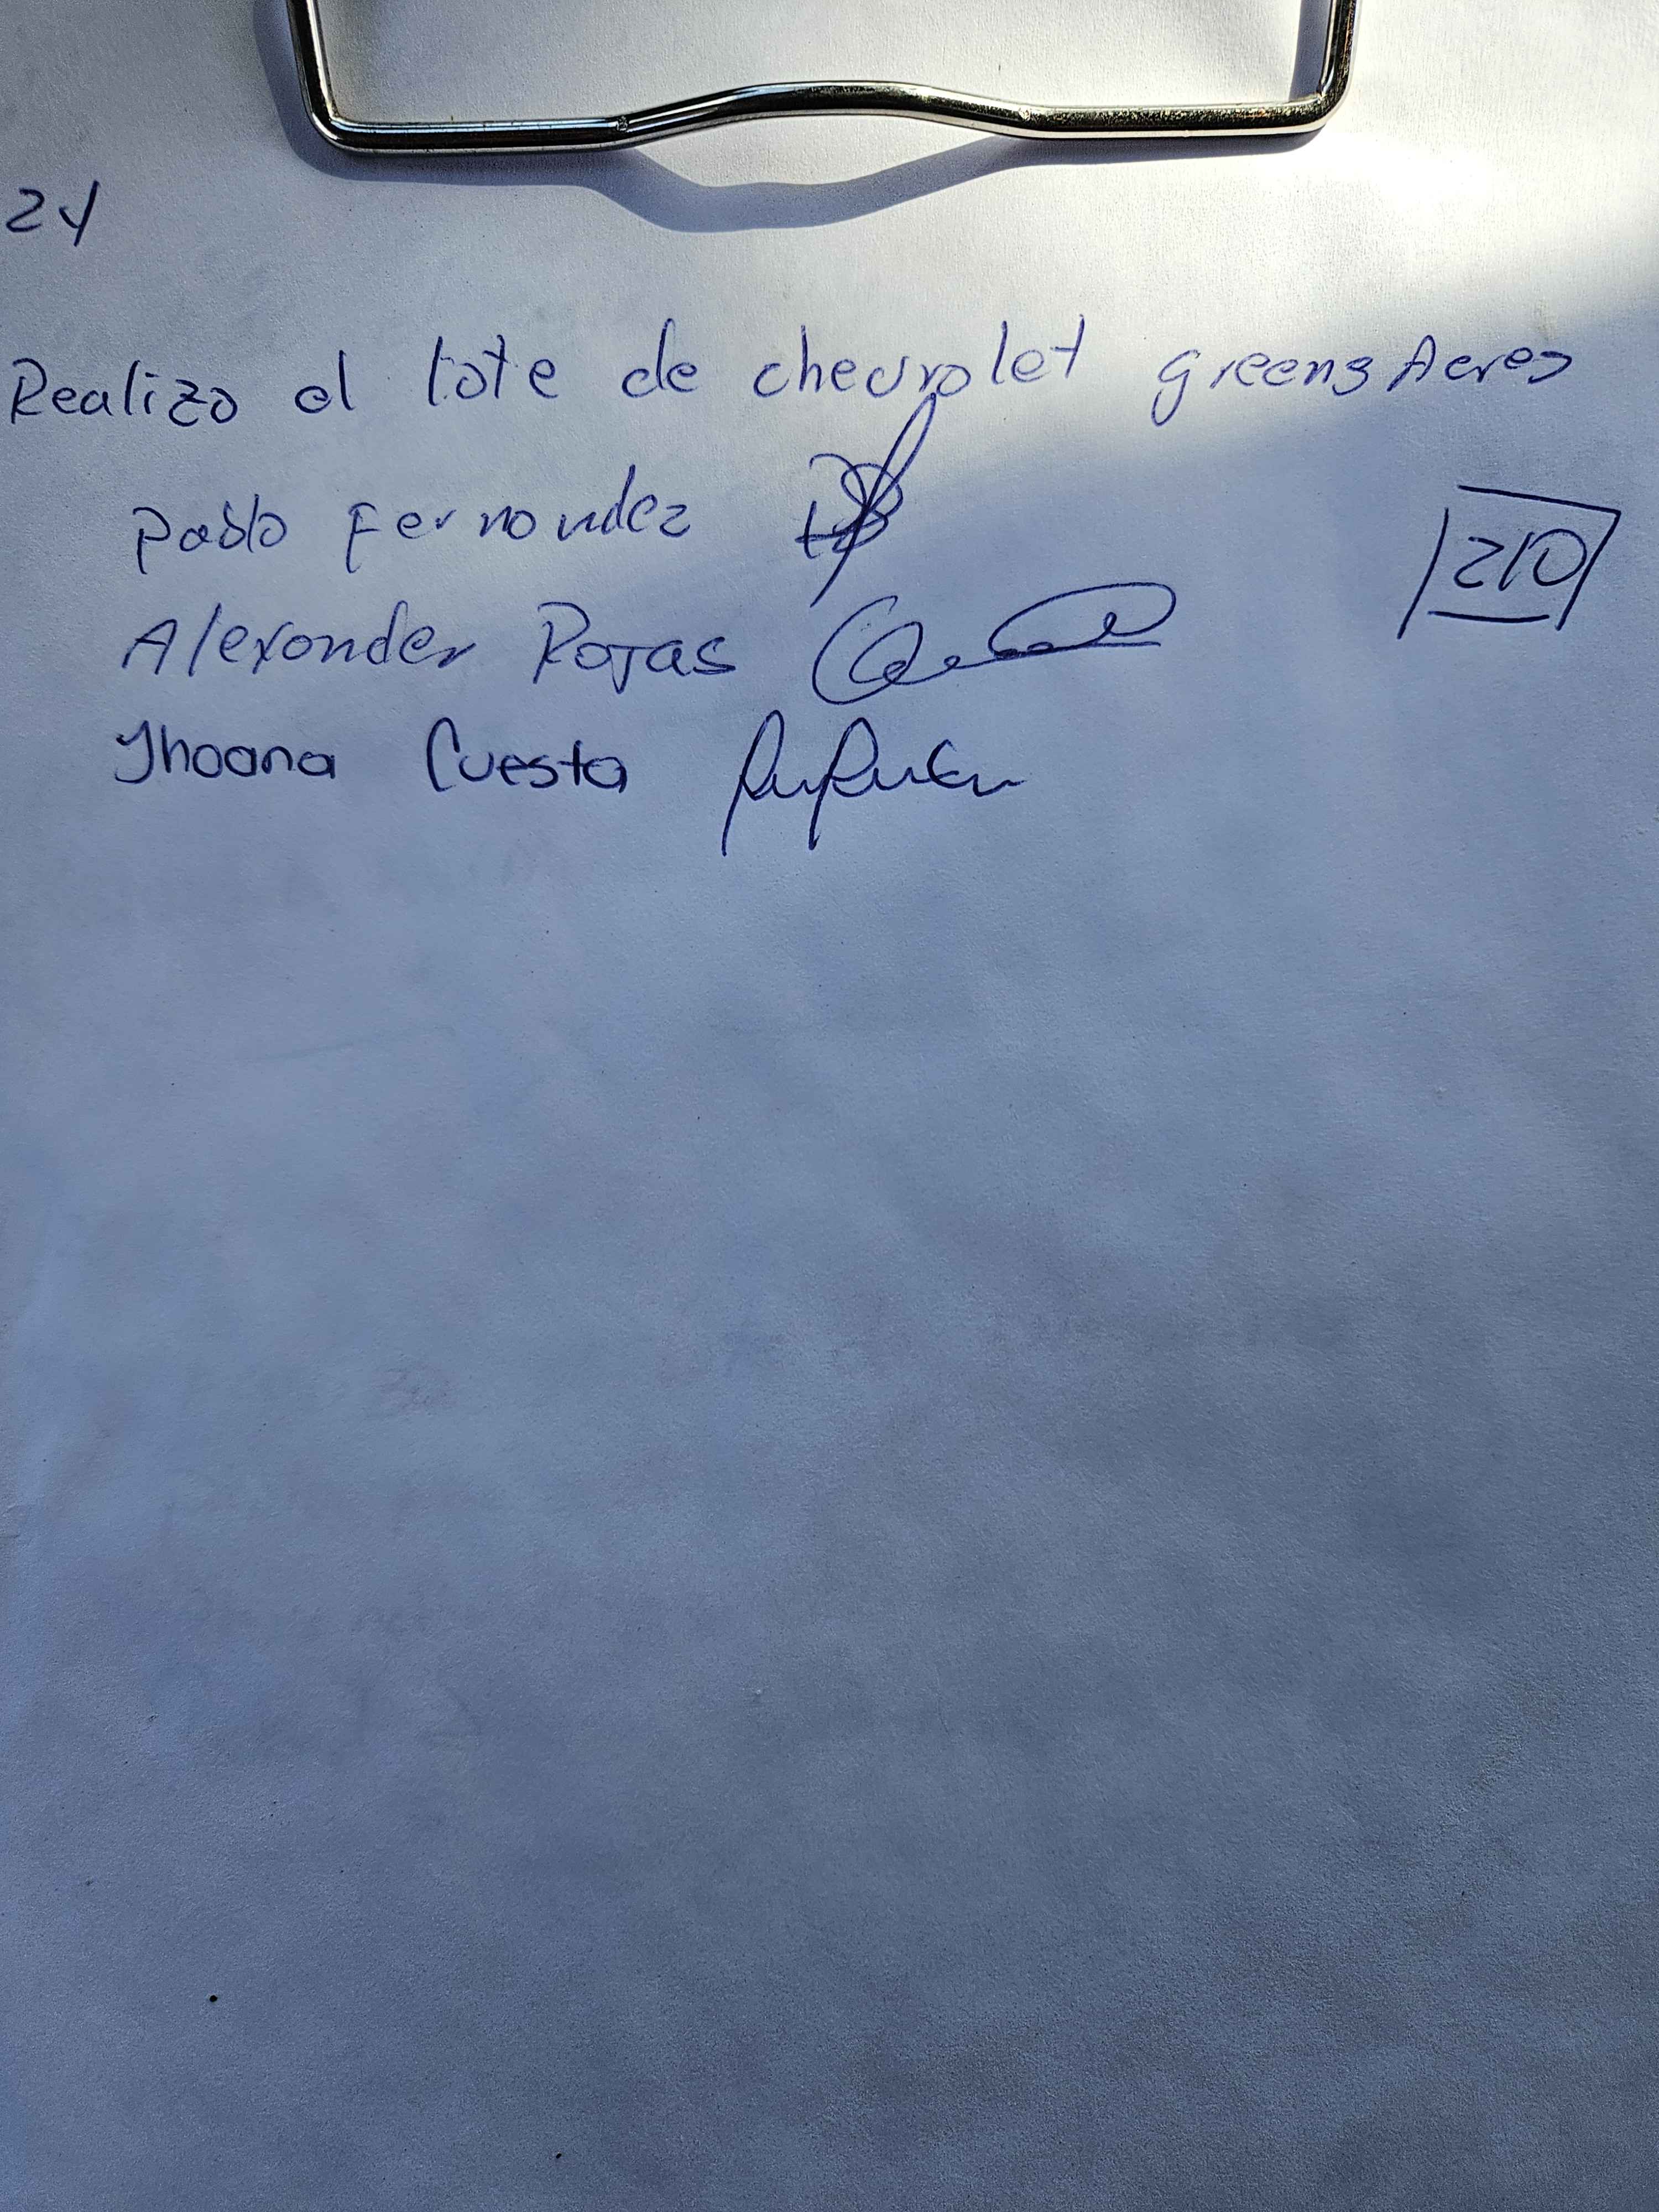 24
Realizo el lote de chevrolet greens Acres
Pablo Fernandez
210
Alexander Rojas
Jhoana Cuesta